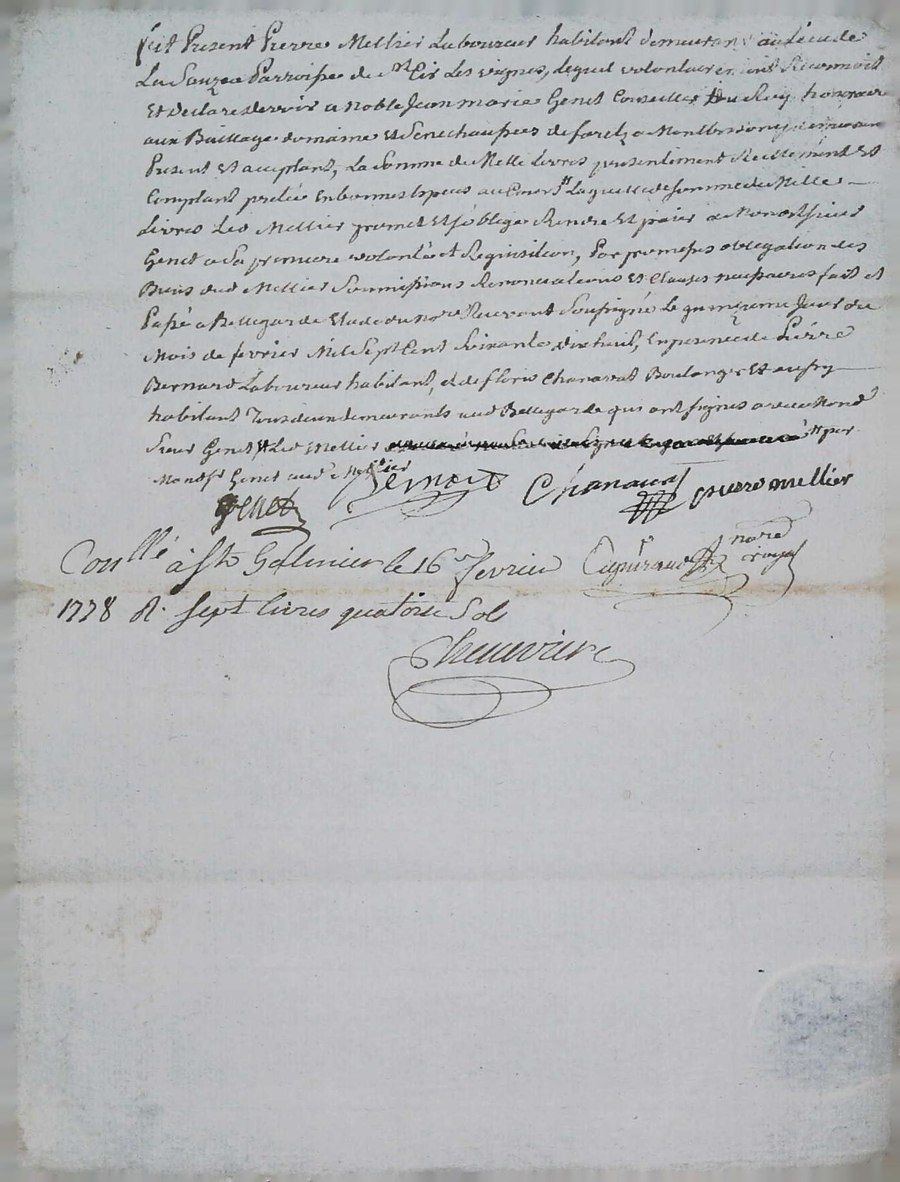 fut Present Pierre Mellier Laboureur habitant demeurant au Lieu de
La Sauzea Parroisse de St Cir Les vignes, lequel volontairement Reconnoit
Et Declare devoir a Noble Jean marie Genet Conseiller Du Roy honoraire
aux Bailliage domaine Et Senechaussée de forez a Montbrison y demeurant
Present Et acceptant, La Somme de Mille Livres presentement Reellement Et
Comptant pretée En bonnes Especes au Cours laquelle de Somme de Mille
Livres Led Mellier promet Et s'oblige Rendre Et paier a Mond Sieur
Genet a Sa premiere volonté et Requisition, Par promesses obligation des
Biens dud Mellier Soumissions Renonciations Et Clauses necessaires fait et
Passé a Bellegarde Etude du Nore Recevant Soussigné Le quinzieme Jour du
Mois de fevrier Mil Sept Cent Soixante dix huit, En presence de Pierre
Bernard Laboureur habitant, et de floris Chanavat Boulanger Et aussy
habitant Tous deux demeurants aud Bellegarde qui ont signés avec Mond
Sieur Genet Et Led Mellier par
Mond Sr Genet aud Mellier
Genet Bernard Chanavat pierre mellier
Conllé à St Galmier le 16e fevrier nore royal
1778 R. sept livres quatorze Sols
Chenevriere